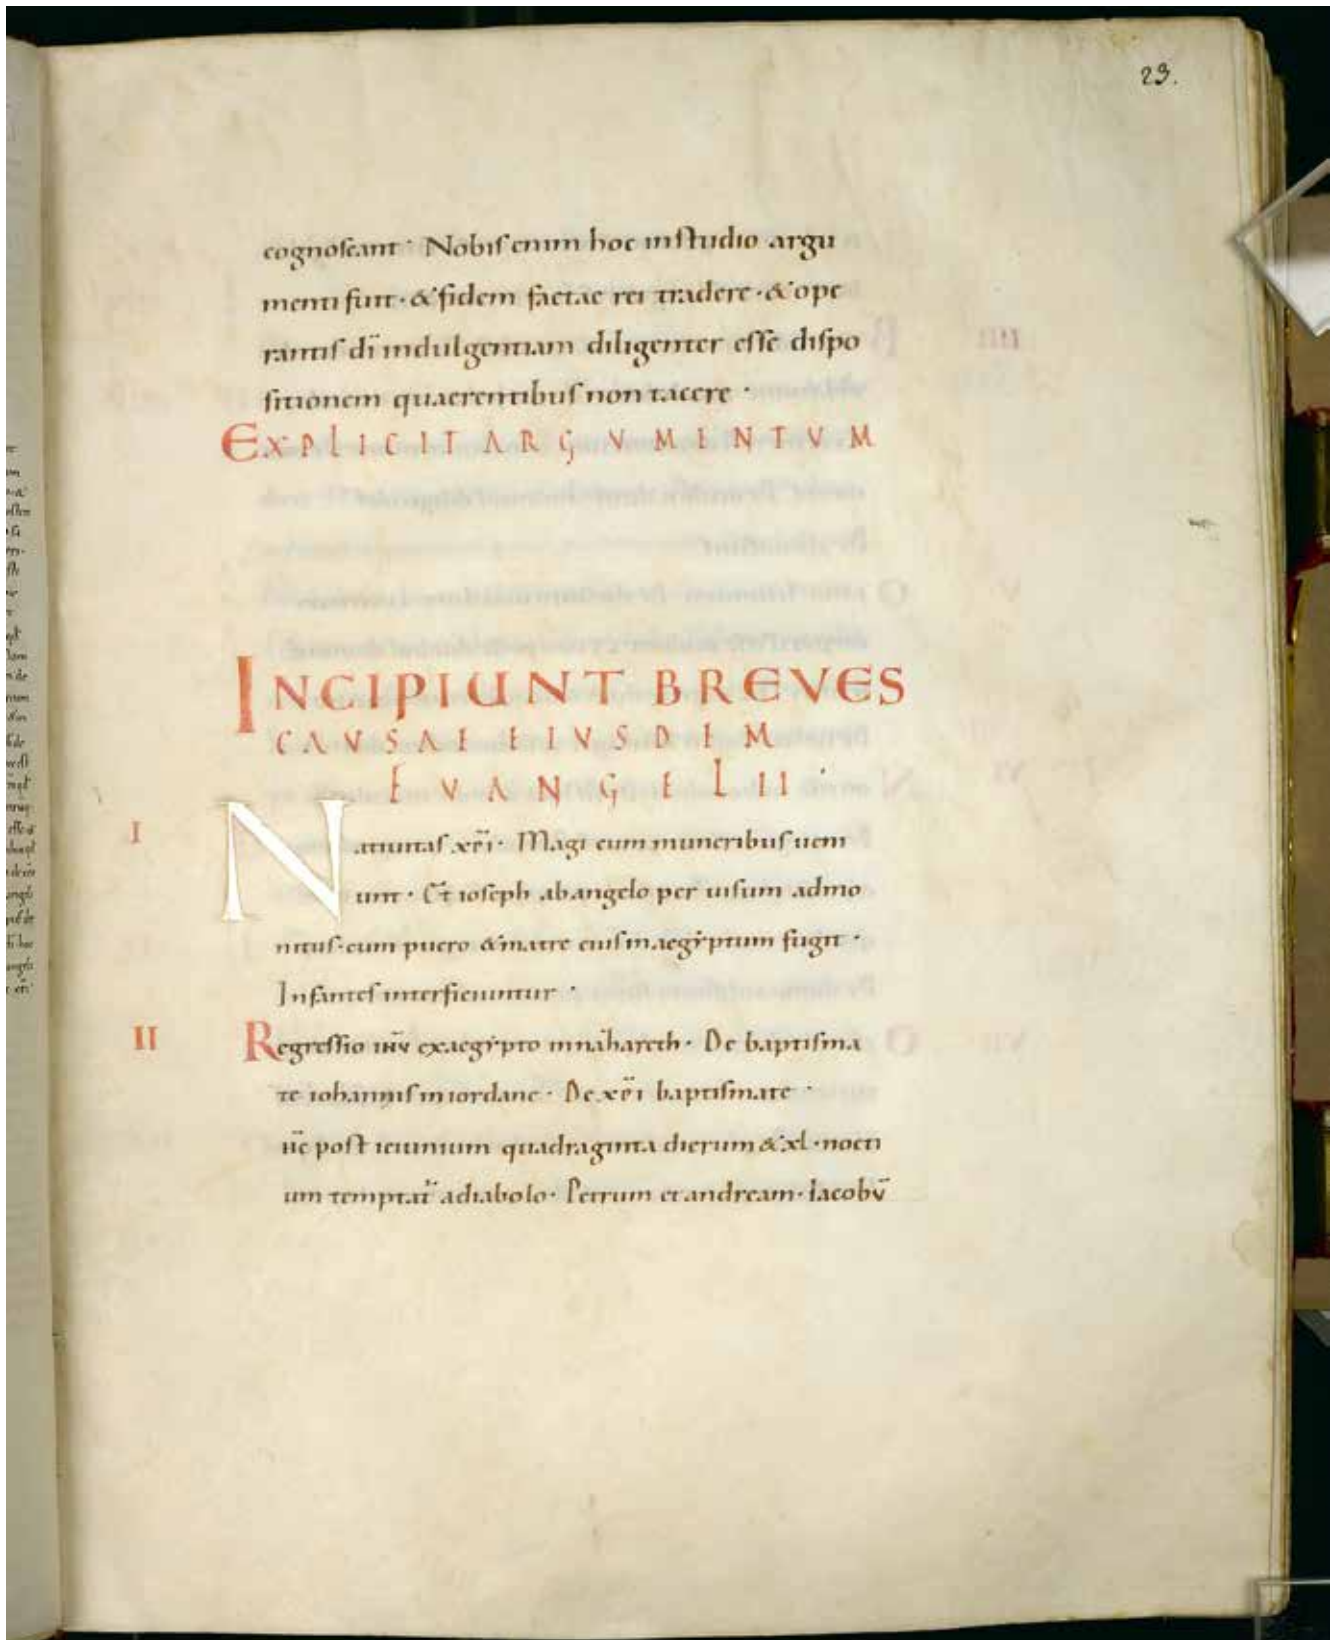 23.
cognoscant· Nobis enim hoc in studio argu
menti fuit· & fidem factae rei tradere· & ope
rantis dī indulgentiam diligenter esse dispo
sitionem quaerentibus non tacere·
EXPLICIT ARGVMENTVM
INCIPIUNT BREVES
CAVSAE EIVSDEM
EVANGELII·
I Natiuitas xp̄i· Magi cum muneribus ueni
unt· Et ioseph ab angelo per uisum admo
nitus· cum puero & matre eius in aegyptum fugit·
Infantes interficiuntur·
II Regressio ihv̄ ex aegypto in nahareth· De baptisma
te iohannis in iordane· De xp̄i baptismate·
Hc̄ post ieiunium quadraginta dierum & xl· nocti
um temptat̄ a diabolo· Petrum et andream· Iacobv̄